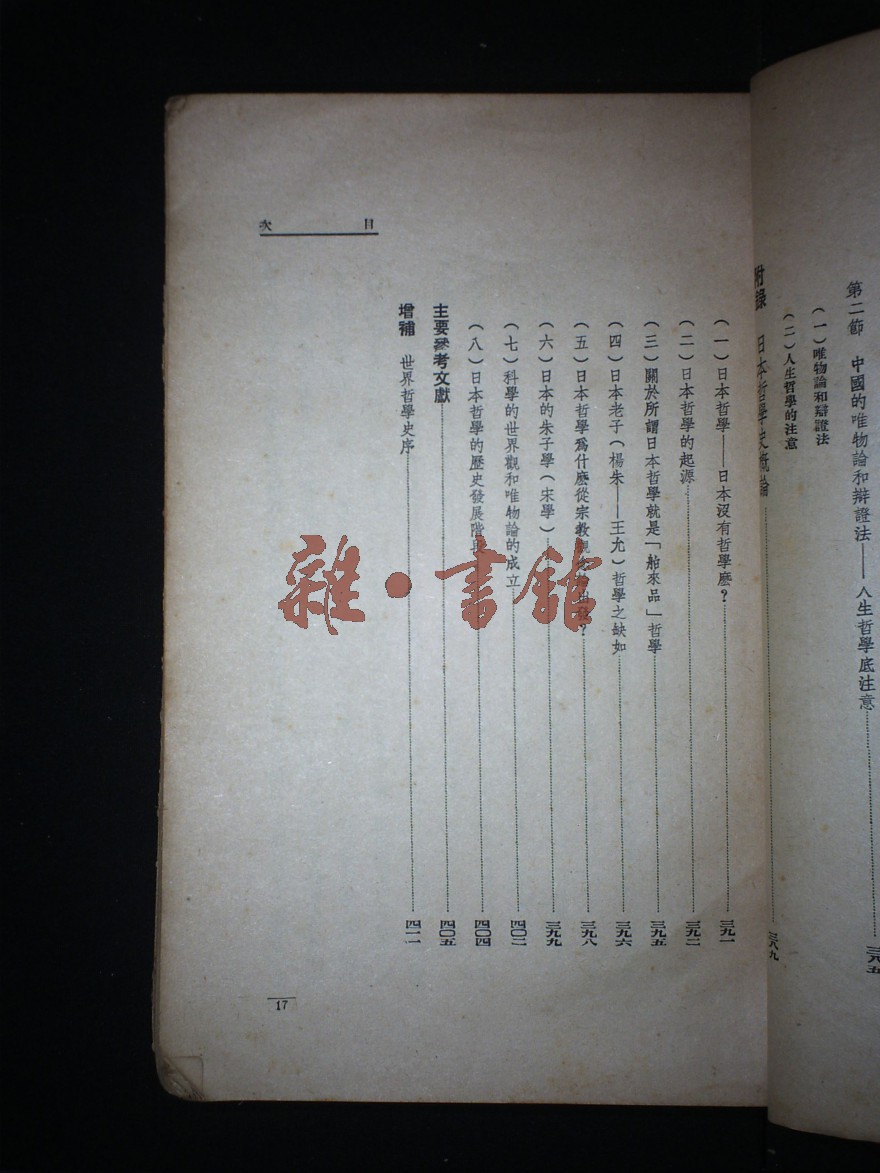 第二節 中國的唯物論和辯證法——人生哲學底注意……三八五
(一)唯物論和辯證法
(二)人生哲學的注意
附錄 日本哲學史概論……三八九
目次
(一)日本哲學——日本沒有哲學麽?……三九一
(二)日本哲學的起源……三九二
(三)關於所謂日本哲學就是「舶來品」哲學……三九五
(四)日本老子(楊朱——王允)哲學之缺如……三九六
(五)日本哲學爲什麽從宗教觀念論出發?……三九八
(六)日本的朱子學(宋學)……三九九
(七)科學的世界觀和唯物論的成立……四〇二
(八)日本哲學的歷史發展階段……四〇四
主要參考文獻……四〇五
增補 世界哲學史序……四一一
17
雜·書館